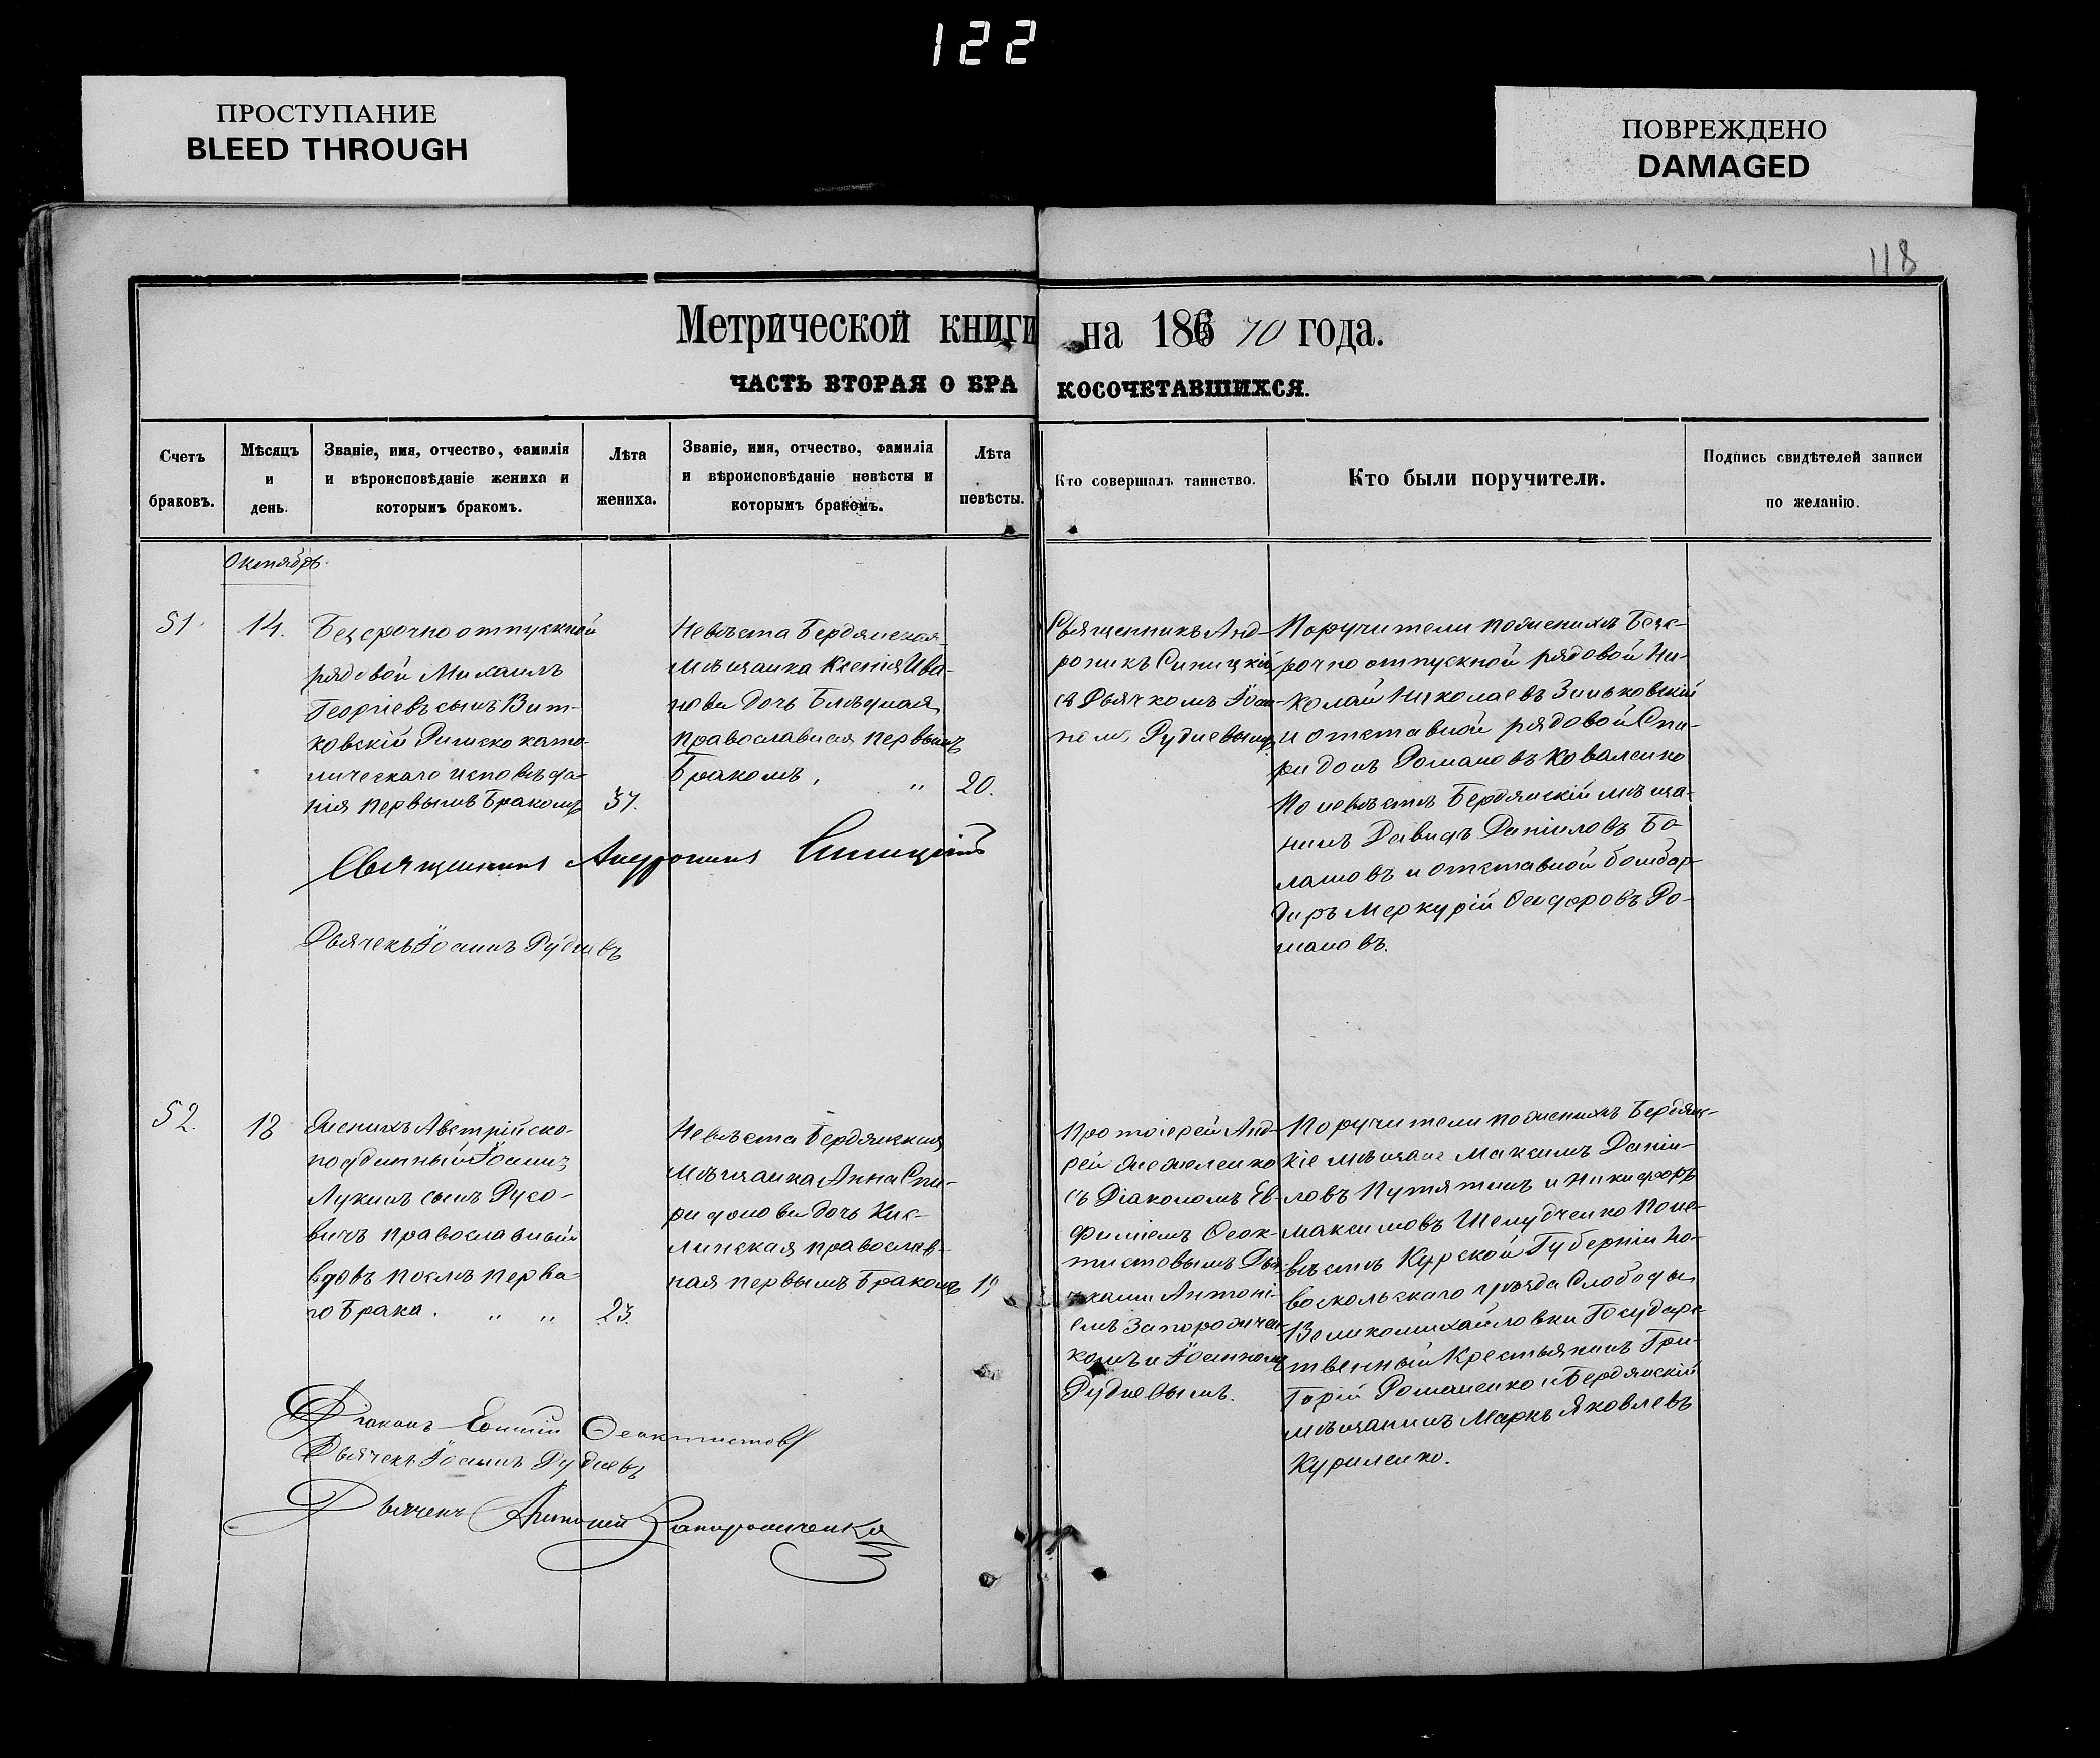 122
ПРОСТУПАНИЕ
BLEED THROUGH
ПОВРЕЖДЕНО
DAMAGED
118
Метрической книги на 186 70 года.
ЧАСТЬ ВТОРАЯ О БРАКОСОЧЕТАВШИХСЯ.
Счетъ
браковъ.
Мѣсяцъ
и
день.
Званіе, имя, отчество, фамилія
и вѣроисповѣданіе жениха и
которымъ бракомъ.
Лѣта
жениха.
Званіе, имя, отчество, фамилія
и вѣроисповѣданіе невѣсты и
которымъ бракомъ.
Лѣта
невѣсты.
Кто совершалъ таинство.
Кто были поручители.
Подпись свидѣтелей записи
по желанію.
Октябрь.
51.
14.
Безсрочно отпускной
рядовой Михаилъ
Георгіевъ сынъ Вит-
ковскій Римско като-
лическаго исповѣда-
нія первымъ бракомъ
37.
Невѣста Бердянская
мѣщанка Ксенія Ива-
нова дочь Блѣдная
православная первымъ
бракомъ. "
20.
Священникъ Анд-
роникъ Синицкій
съ Дьячкомъ Іоан-
номъ Рудневымъ
Поручители по женихѣ Безс-
рочно отпускной рядовой Ни-
колай Николаевъ Зиньковскій
и отставной рядовой Спи-
ридонъ Романовъ Коваленко
По невѣстѣ Бердянскій мѣща-
нинъ Давидъ Даніиловъ Бо-
лановъ и отставной бомбар-
диръ Меркурій Феодоровъ Ро-
мановъ.
Священникъ Андроникъ Синицкій
Дьячекъ Іоаннъ Рудневъ
52.
18
Женихъ Австрійско-
подданный Іоаннъ
Лукинъ сынъ Русо-
вичъ православный
вдовъ послѣ перва-
го брака. " "
23.
Невѣста Бердянская
мѣщанка Анна Спи-
ридонова дочь Кис-
линская православ-
ная первымъ бракомъ
19
Протоіерей Анд-
рей Жежеленко
съ Діакономъ Ев-
фиміемъ Феок-
тистовымъ Дья-
чками Антоні-
емъ Запорожчен-
комъ и Іоанномъ
Рудневымъ.
Поручители по женихѣ Бердянс-
кіе мѣщане Максимъ Даніи-
ловъ Путятинъ и Никифоръ
Максимовъ Шелудченко По не-
вѣстѣ Курской Губерніи Но-
воскольскаго уѣзда Слободы
Великомихайловки Государс-
твенный Крестьянинъ Гри-
горій Романенко и Бердянскій
мѣщанинъ Маркъ Яковлевъ
Куриленко.
Діаконъ Евфимій Феоктистовъ
Дьячекъ Іоаннъ Рудневъ
Дьячекъ Антоній Запорожченко